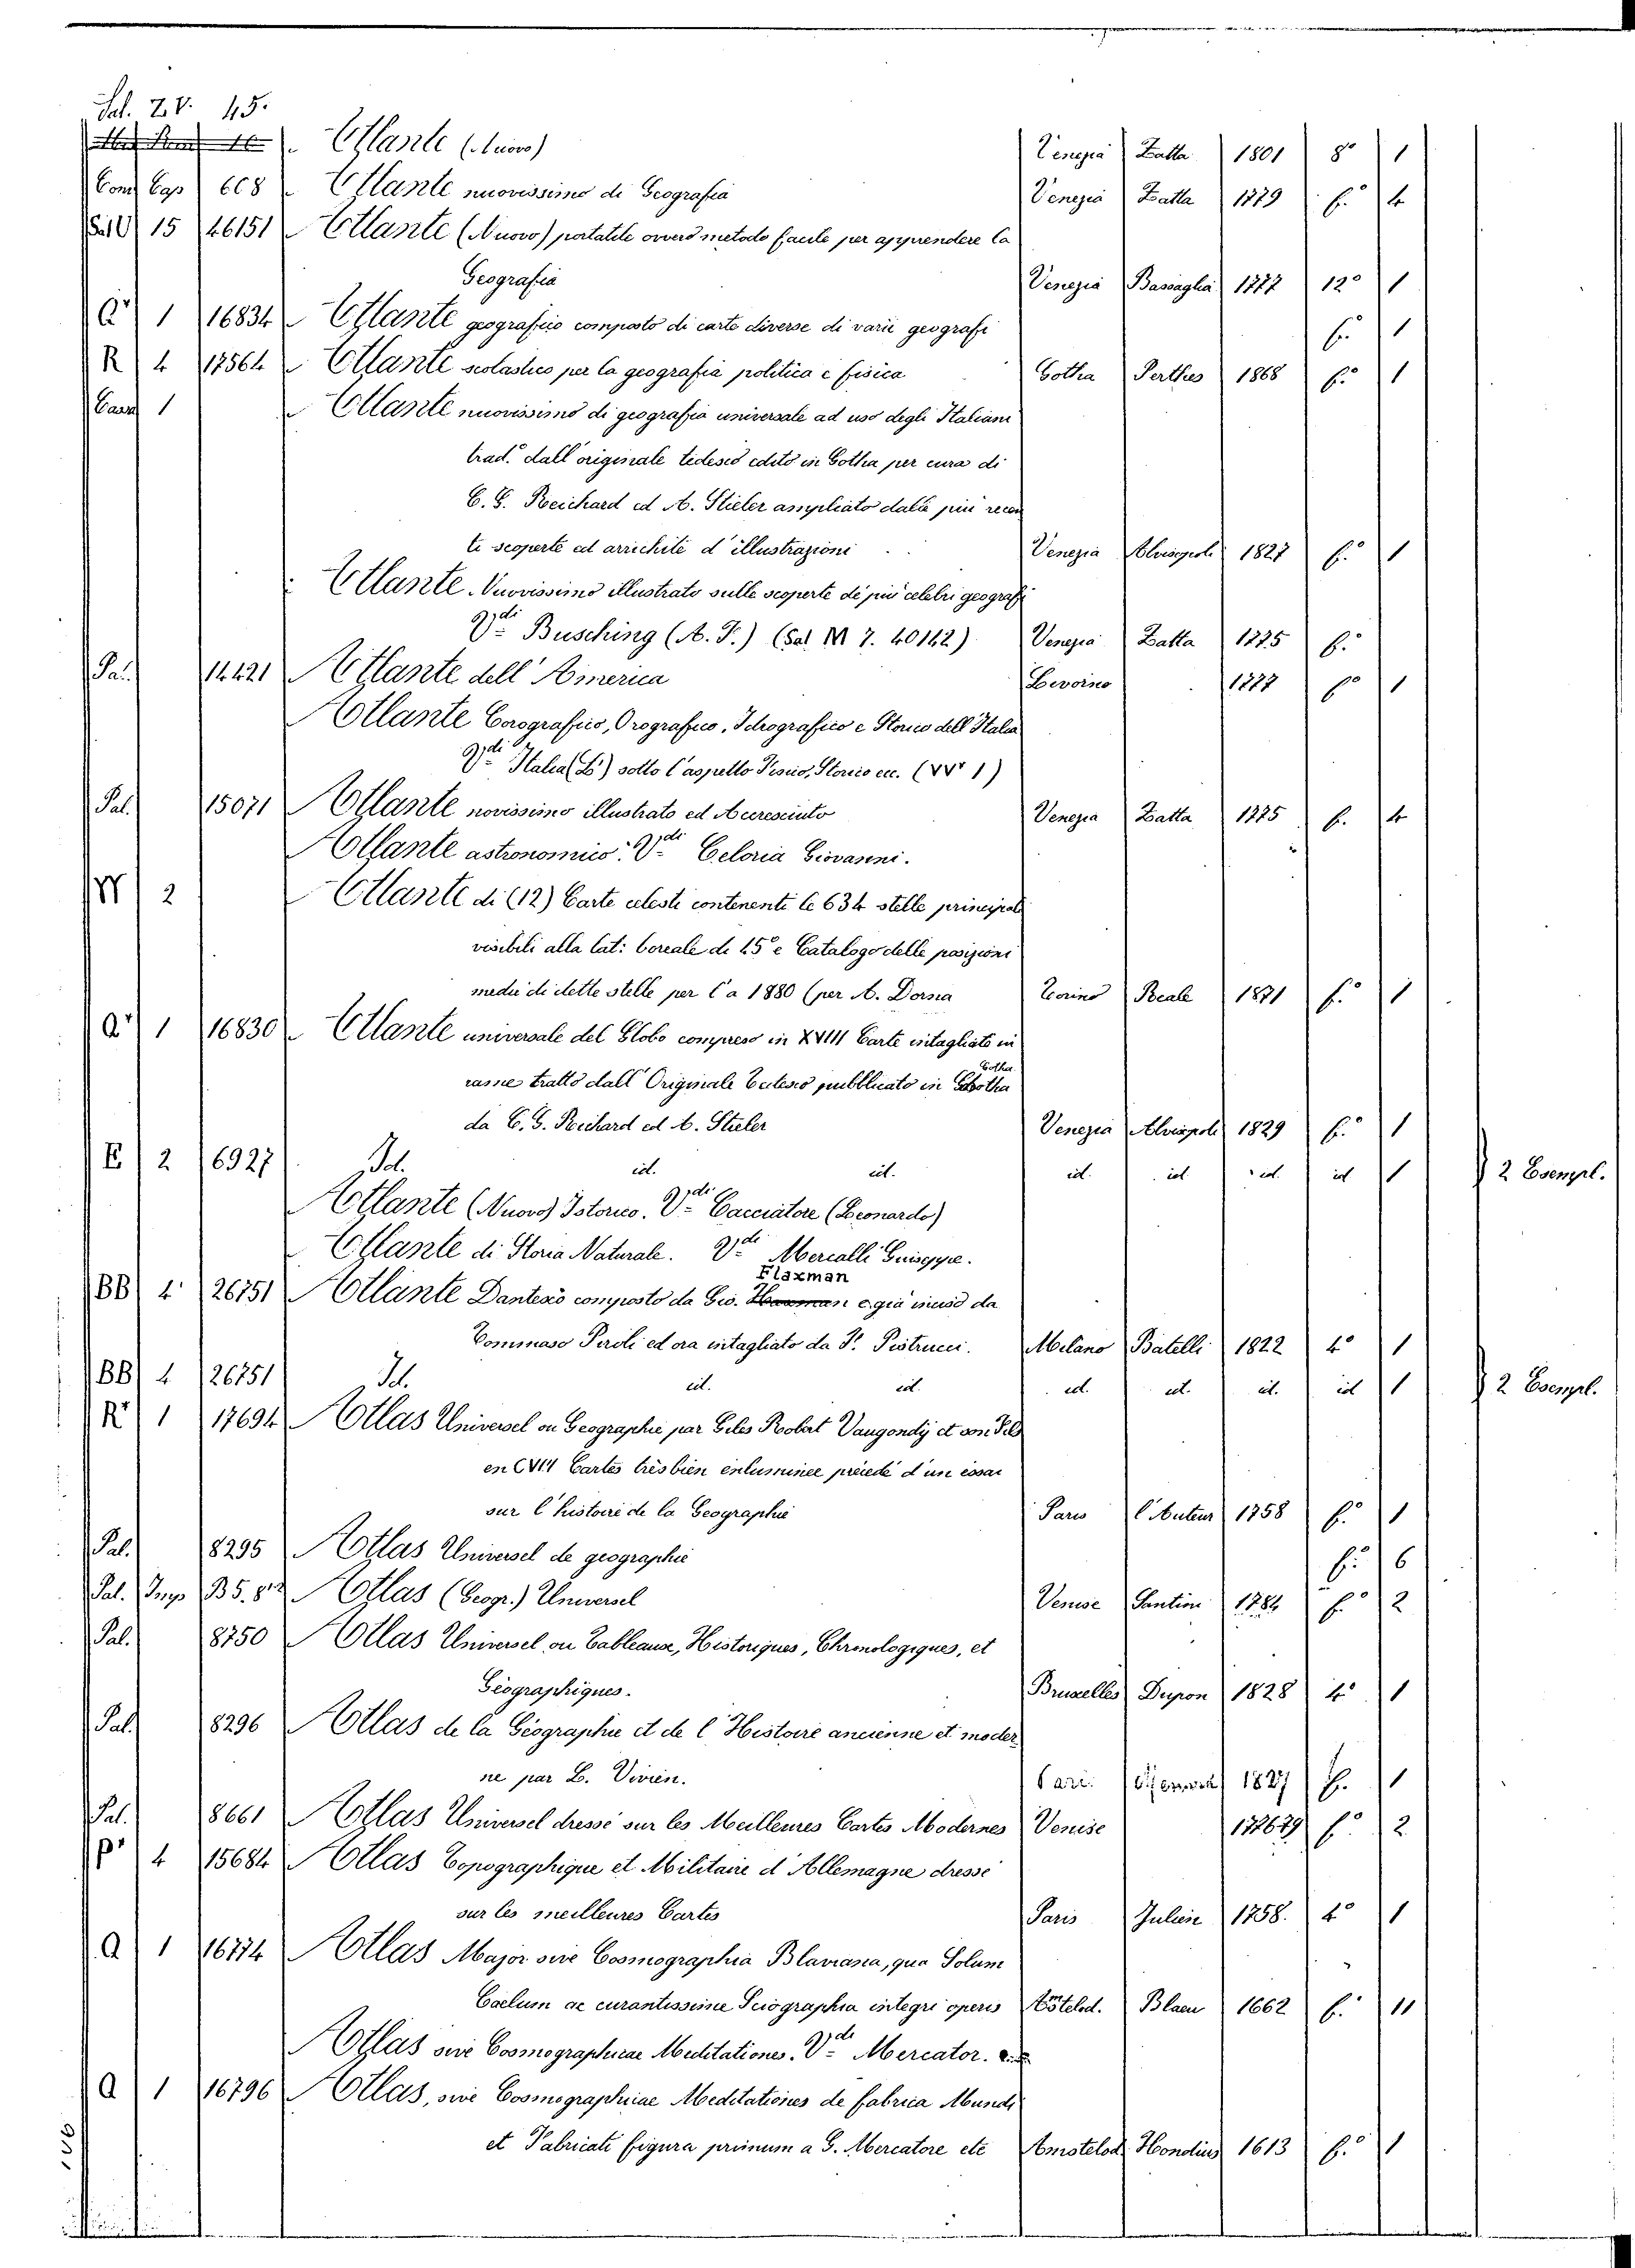 Sal. Z.V. 45.
Atlante (Nuovo) Venezia Zatta 1801 8° 1
Com Cap 668 Atlante nuovissimo di Geografia Venezia Zatta 1779 f.° 4
Sal U 15 46151 Atlante (Nuovo) portatile ovvero metodo facile per apprendere la
Geografia Venezia Bassaglia 1777 12° 1
Q' 1 16834 Atlante geografico composto di carte diverse di varii geografi f.° 1
R 4 17564 Atlante scolastico per la geografia politica e fisica Gotha Perthes 1868 f.° 1
1 Atlante nuovissimo di geografia universale ad uso degli Italiani
trad. dall'originale tedesco edito in Gotha per cura di
C. G. Reichard ed A. Stieler ampliato dalle più recen
ti scoperte ed arrichite d'illustrazioni Venezia Alvisopoli 1827 f.° 1
Atlante Nuovissimo illustrato sulle scoperte de più celebri geografi
V.di Busching (A. F.) (Sal M 7. 40142) Venezia Zatta 1775 f.°
Pal. 14421 Atlante dell'America Livorno 1777 f.° 1
Atlante Corografico, Orografico, Idrografico e Storico dell'Italia
V.di Italia (L') sotto l'aspetto Fisico, Storico ecc. (VV' 1)
Pal. 15071 Atlante novissimo illustrato ed Accresciuto Venezia Zatta 1775 f. 4
Atlante astronomico. V.di Celoria Giovanni.
W 2 Atlante di (12) Carte celesti contenenti le 634 stelle principali
visibili alla lat: boreale di 45° e Catalogo delle posizioni
medie di dette stelle per l'a 1880 (per A. Dorna Torino Reale 1871 f.° 1
Q' 1 16830 Atlante universale del Globo compreso in XVIII Carte intagliate in
Gotha
rame tratto dall'Originale Tedesco pubblicato in Gbotha
da C. G. Reichard ed A. Stieler Venezia Alvisopoli 1829 f.° 1
E 2 6927 Id. id. id. id. id. id. id 1 2 Esempl.
Atlante (Nuovo) Istorico. V.di Cacciatore (Leonardo)
Atlante di Storia Naturale. V.di Mercalli Guiseppe.
Flaxman
BB 4 26751 Atlante Dantesco composto da Gio. e già inciso da
Tommaso Piroli ed ora intagliato da F. Pistrucci. Milano Batelli 1822 4° 1
BB 4 26751 Id. id. id. id. id. id. id 1 2 Esempl.
R' 1 17694 Atlas Universel ou Geographie par Giles Robert Vaugondÿ et son Fils
en CVIII Cartes très bien enluminee précédé d'un essai
sur l'histoire de la Geographie Paris l'Auteur 1758 f.° 1
Pal. 8295 Atlas Universel de geographie f.° 6
Pal. Imp B5. Atlas (Geogr.) Universel Venise Santini 1784 f.° 2
Pal. 8750 Atlas Universel ou Tableaux, Historiques, Chronologiques, et
Géographiques. Bruxelles Dupon 1828 4° 1
Pal. 8296 Atlas de la Géographie et de l'Histoire ancienne et moder
ne par L. Vivien. Pari. 1827 f. 1
Pal. 8661 Atlas Universel dressé sur les Meilleures Cartes Modernes Venise f.° 2
P' 4 15684 Atlas Topographique et Militaire d'Allemagne dressé
sur les meilleures Cartes Paris Julien 1758. 4° 1
Q 1 16774 Atlas Major sive Cosmographia Blaviana, qua Solum
Caelum ac curantissime Sciographia integri operis Astelod. Blaeu 1662 f.° 11
Atlas sive Cosmographicae Meditationes. V.di Mercator.
Q 1 16796 Atlas, sive Cosmographiae Meditationes de fabrica Mundi
et Fabricati figura primum a G. Mercatore etc Amstelod Hondius 1613 f.° 1